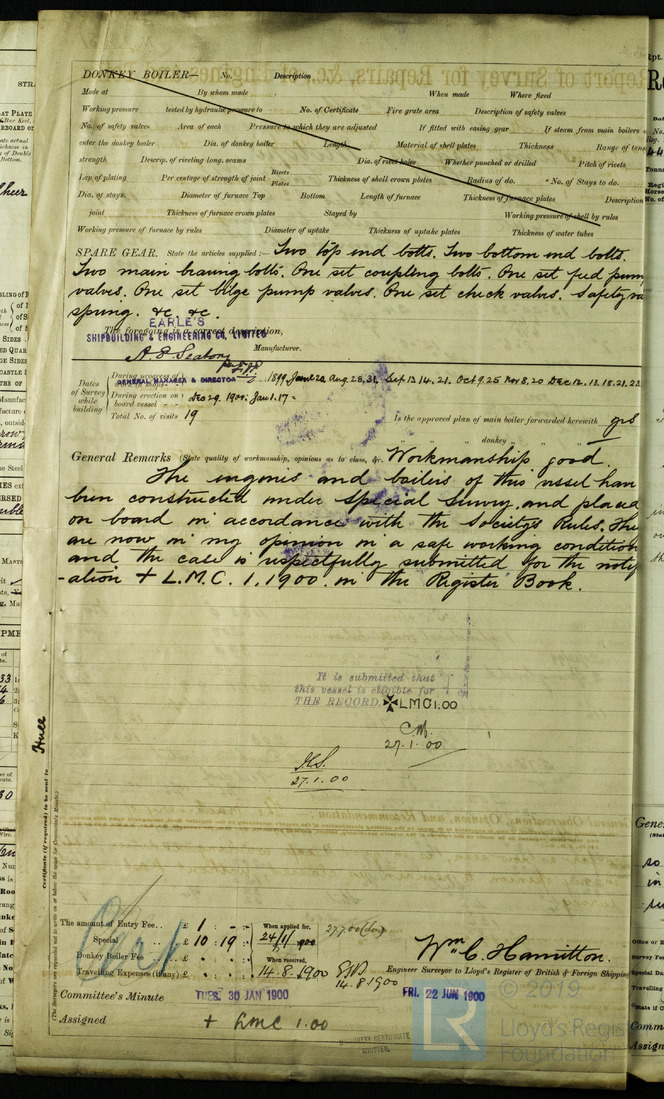 DONKEY BOILER— No. Description
Made at By whom made When made Where fixed
Working pressure tested by hydraulic pressure to No. of Certificate Fire grate area Description of safety valves
No. of safety valves Area of each Pressure to which they are adjusted If fitted with easing gear If steam from main boilers
enter the donkey boiler Dia. of donkey boiler Length Material of shell plates Thickness Range of tens
strength Descrip. of riveting long. seams Dia. of rivet holes Whether punched or drilled Pitch of rivets
Lap of plating Per centage of strength of joint Rivets Plates Thickness of shell crown plates Radius of do. No. of Stays to do.
Dia. of stays. Diameter of furnace Top Bottom Length of furnace Thickness of furnace plates Description
joint Thickness of furnace crown plates Stayed by Working pressure of shell by rules
Working pressure of furnace by rules Diameter of uptake Thickness of uptake plates Thickness of water tubes
SPARE GEAR. State the articles supplied:— Two top end bolts. Two bottom end bolts.
Two main bearing bolts. One set coupling bolts. One set feed pump
valves. One set bilge pump valves. One set check valves. Safety va
spring. &c. &c.
The foregoing is a correct description,
EARLE'S
SHIPBUILDING & ENGINEERING CO, LIMITED
Manufacturer.
GENERAL MANAGER & DIRECTOR
Dates of Survey while building
During progress of 1899. June 22 Aug. 28.31. Sep 13.14.21. Oct 9.25 Nov 8.20 Dec 12.13.18.21.23
During erection on board vessel Dec 29. 1900: Jan 1.17 -
Total No. of visits 19
Is the approved plan of main boiler forwarded herewith yes
" " donkey " " "
General Remarks (State quality of workmanship, opinions as to class, &c. Workmanship good
The engines and boilers of this vessel have
been constructed under Special Survey, and placed
on board in accordance with the Society's Rules. They
are now in my opinion in a safe working condition
and the case is respectfully submitted for the notifi
-ation + L.M.C. 1.1900. in the Register Book.
It is submitted that
this vessel is eligible for
THE RECORD. ✠LMC1.00
27.1.00
27.1.00
Hull
Certificate (if required) to be sent to
The amount of Entry Fee.. £ 1 : - : -
When applied for,
Special £ 10 : 19 : -
24/1/1900
Donkey Boiler Fee £ : :
When received,
Travelling Expenses (if any) £ : :
14.8.1900
14.8.1900
Wm C. Hamilton.
Engineer Surveyor to Lloyd's Register of British & Foreign Shipping
Committee's Minute
TUES. 30 JAN 1900
FRI. 22 JUN 1900
Assigned
+ LMC 1.00
MACHINERY CERTIFICATE
WRITTEN.
© 2019
Lloyd's Regis
Foundation